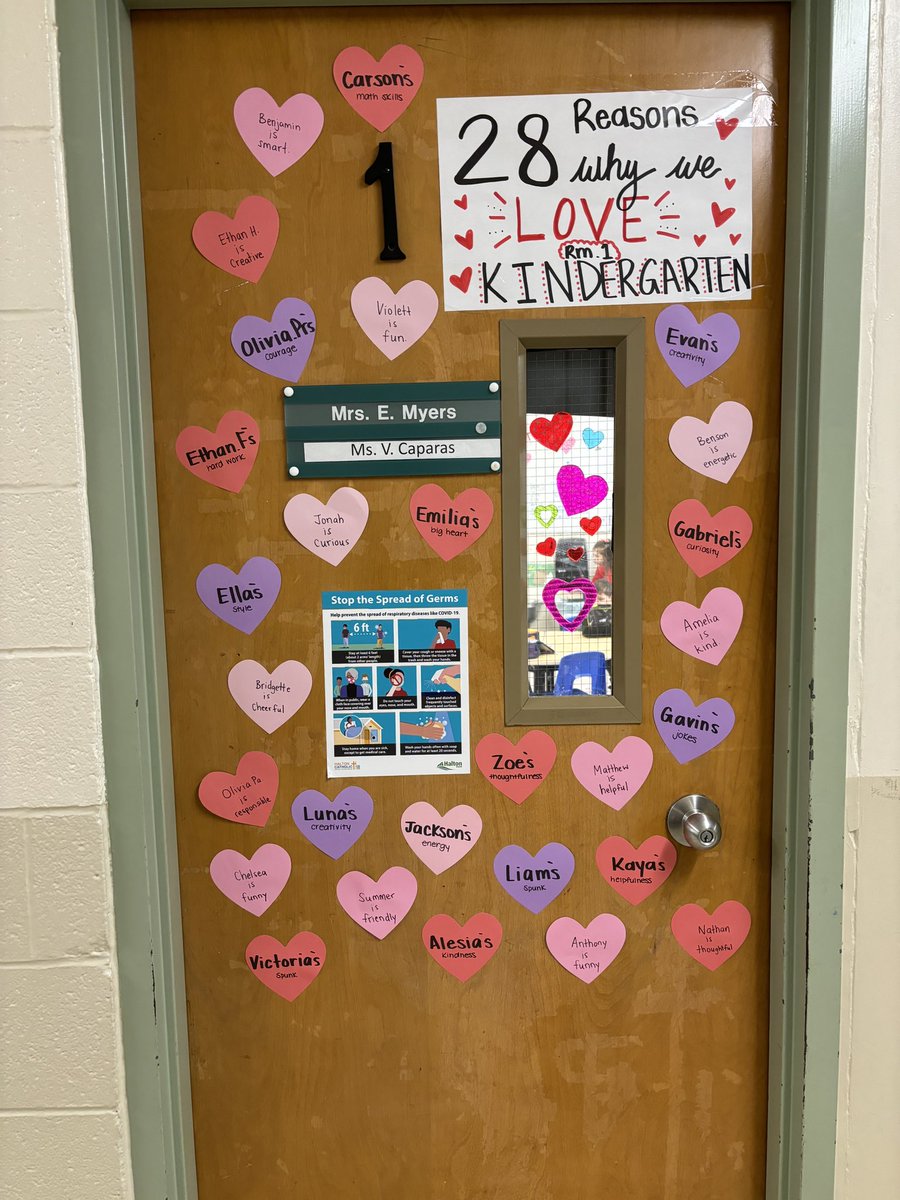 Carson's
math skills
Benjamin
is
smart.
1
28 Reasons
why we
LOVE
Rm. 1
KINDERGARTEN
Ethan H.
is
Creative
Violett
is
fun.
Olivia.Pr's
courage
Evan's
creativity
Mrs. E. Myers
Ms. V. Caparas
Ethan.F's
hard work
Benson
is
energetic
Jonah
is
Curious
Emilia's
big heart
Gabriel's
curiosity
Ella's
style
Amelia
is
kind
Stop the Spread of Germs
Help prevent the spread of respiratory diseases like COVID-19.
6 ft
Stay at least 6 feet
(about 2 arms' length)
from other people.
Cover your cough or sneeze with a
tissue, then throw the tissue in the
trash and wash your hands.
When in public, wear a
cloth face covering over
your nose and mouth.
Do not touch your
eyes, nose, and mouth.
Clean and disinfect
frequently touched
objects and surfaces.
Stay home when you are sick,
except to get medical care.
Wash your hands often with soap
and water for at least 20 seconds.
HALTON
CATHOLIC
Halton
Bridgette
is
Cheerful
Gavin's
jokes
Zoe's
thoughtfulness
Matthew
is
helpful
Olivia Pa
is
responsible
Luna's
creativity
Jackson's
energy
Chelsea
is
funny
Summer
is
friendly
Liam's
spunk
Kaya's
helpfulness
Victoria's
spunk
Alesia's
kindness
Anthony
is
funny
Nathan
is
thoughtful